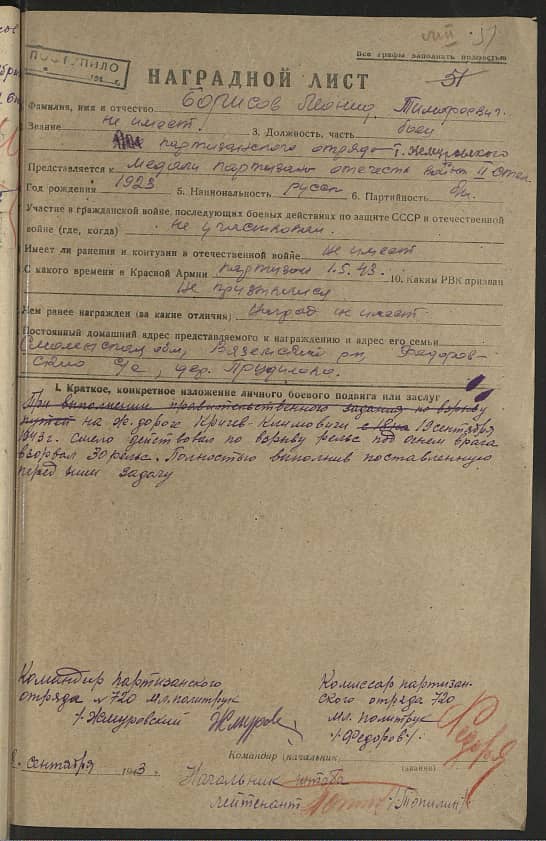 51
Все графы заполнять полностью
ПОСТУПИЛО
НАГРАДНОЙ ЛИСТ
51
Фамилия, имя и отчество Борисов Леонид Тимофеевич.
Звание не имеет. 3. Должность, часть боец
партизанского отряда т. Жмуровского
Представляется к медали партизану отечеств войны II степ.
Год рождения 1923 5. Национальность русск 6. Партийность б/п.
Участие в гражданской войне, последующих боевых действиях по защите СССР и отечественной
войне (где, когда) не участвовал.
Имеет ли ранения и контузии в отечественной войне не имеет
С какого времени в Красной Армии партизан 1.5.43. 10. Каким РВК призван
не призывался
Чем ранее награжден (за какие отличия) Наград не имеет
Постоянный домашний адрес представляемого к награждению и адрес его семьи
Смоленская обл, Вяземский рн, Федоров-
ского с/с, дер.
I. Краткое, конкретное изложение личного боевого подвига или заслуг
При выполнении правительственного задания по взрыву
путей на ж. дороге Кричев-Климовичи 19 сентября
1943 г. смело действовал по взрыву рельс под огнем врага
взорвал 30 рельс. Полностью выполнив поставленную
перед ним задачу
Командир партизанского
отряда № 720 мл. политрук
/Жмуровский
Комиссар партизан-
ского отряда 720
мл. политрук
/Федоров/.
сентября 1943 г.
Командир (начальник)
(звание)
Начальник штаба
лейтенант /Топилин/